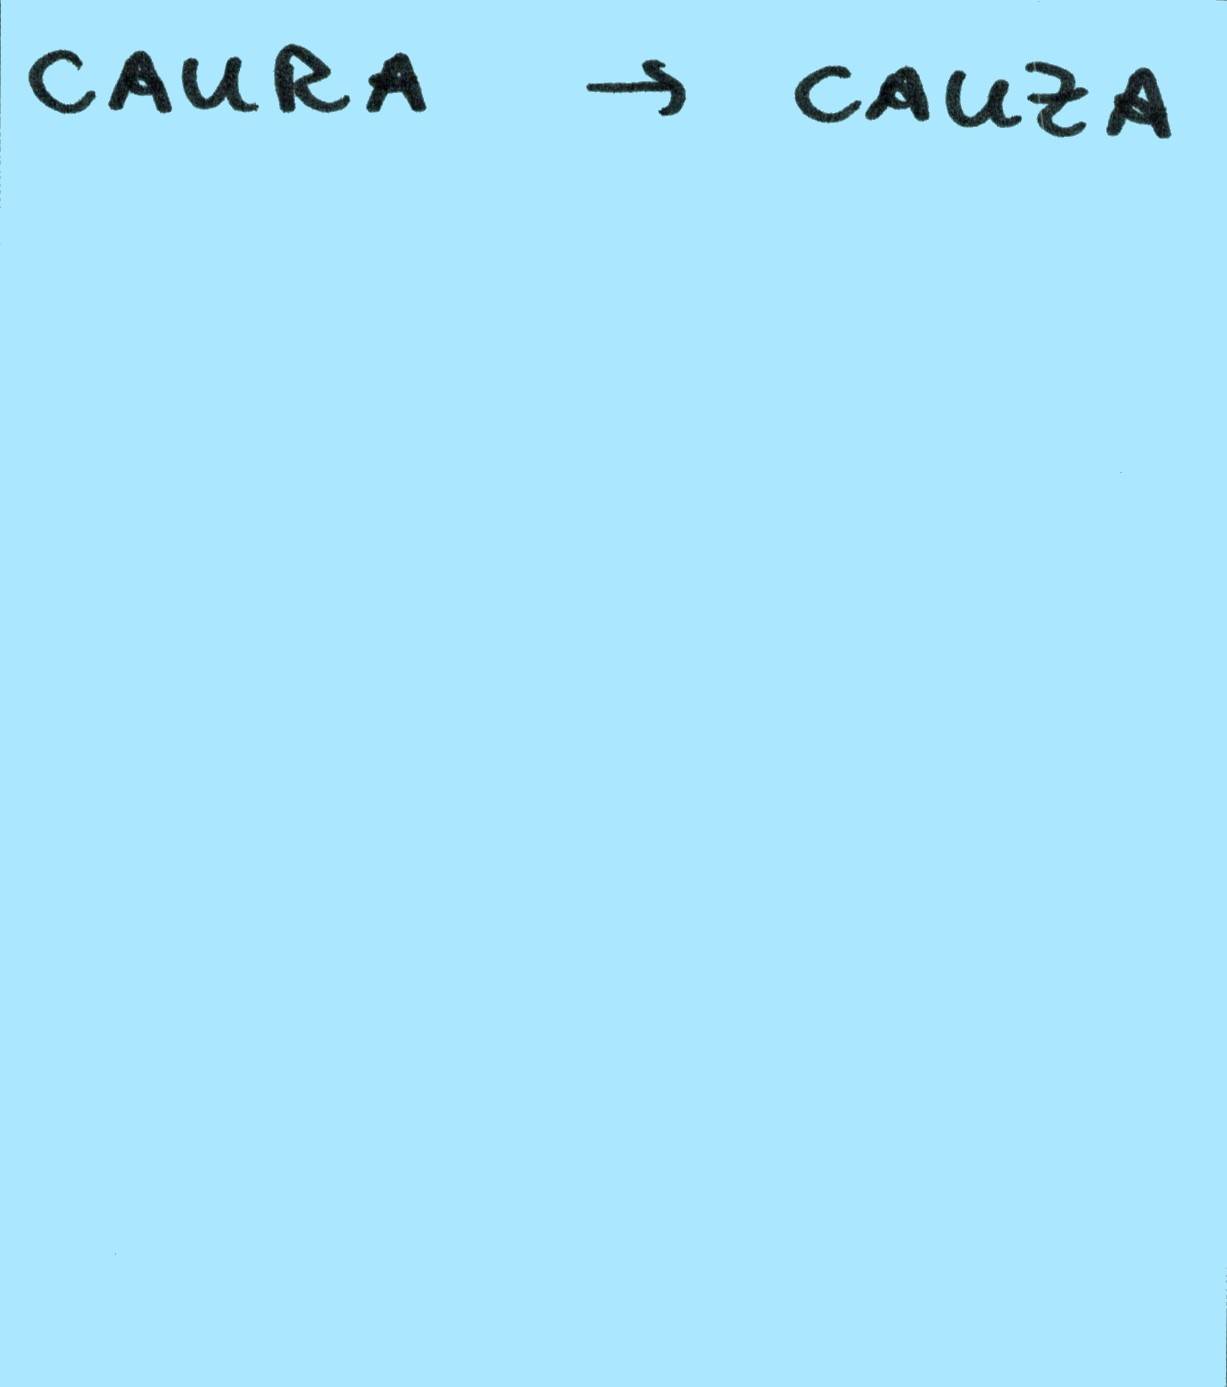 CAURA → CAUZA